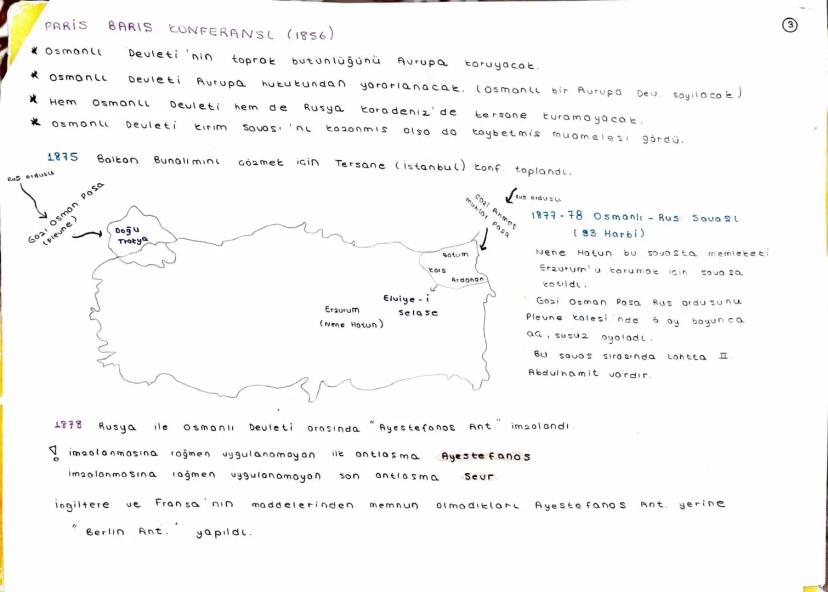 3
PARİS BARIS KONFERANSI (1856)
* Osmanlı Devleti'nin toprak bütünlüğünü Avrupa koruyacak.
* Osmanlı Devleti Avrupa hukukundan yararlanacak. (Osmanlı bir Avrupa Dev. sayılacak)
* Hem Osmanlı Devleti hem de Rusya Karadeniz'de tersane kuramayacak.
* Osmanlı Devleti Kırım Savası'nı kazanmıs olsa da kaybetmis muamelesi gördü.
1875 Balkan Bunalımını cözmek icin Tersane (İstanbul) Konf. toplandı.
Rus ordusu
Gazi Osman Pasa
(Plevne)
Doğu
Trakya
Gazi Ahmet
Muhtar Pasa
Rus ordusu
Batum
Kars
Ardahan
Elviye-i
Selase
Erzurum
(Nene Hatun)
1877-78 Osmanlı - Rus Savası
(93 Harbi)
Nene Hatun bu savasta memleketi
Erzurum'u korumak icin savasa
katıldı.
Gazi Osman Pasa Rus ordusunu
Plevne Kalesi'nde 5 ay boyunca
ac, susuz oyaladı.
Bu savas sırasında tahtta II.
Abdulhamit vardır.
1878 Rusya ile Osmanlı Devleti arasında "Ayestefanos Ant." imzalandı.
! imzalanmasına rağmen uygulanamayan ilk antlasma Ayestefanos
imzalanmasına rağmen uygulanamayan son antlasma Sevr
İngiltere ve Fransa'nın maddelerinden memnun olmadıkları Ayestefanos Ant. yerine
"Berlin Ant." yapıldı.